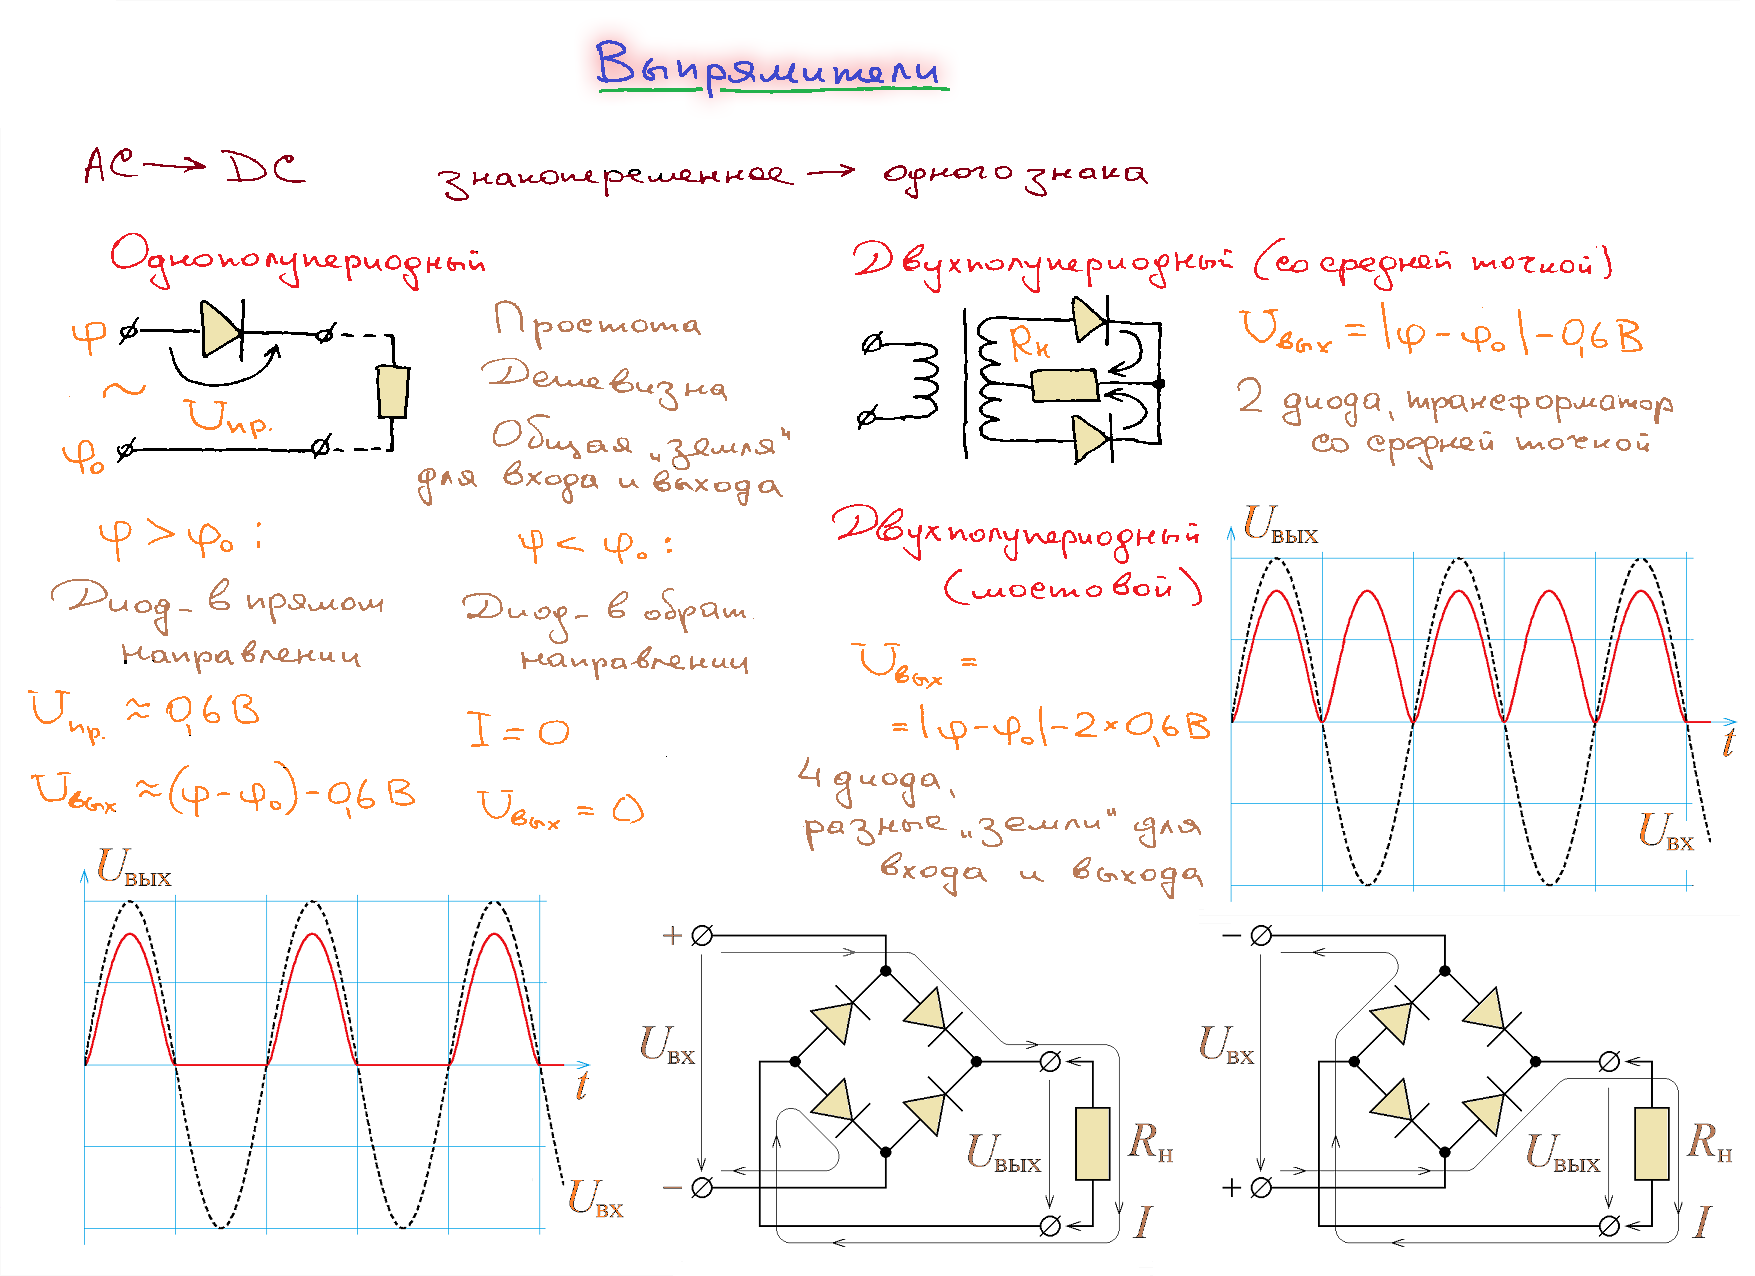 Выпрямители
AC → DC
знакопеременное → одного знака
Однополупериодный
φ
~
Uпр.
φ₀
Простота
Дешевизна
Общая „земля“
для входа и выхода
φ > φ₀ :
Диод - в прямом
направлении
Uпр. ≈ 0,6 В
Uвых ≈ (φ - φ₀) - 0,6 В
φ < φ₀ :
Диод - в обрат.
направлении
I = 0
Uвых = 0
Uвых
t
Uвх
Двухполупериодный (со средней точкой)
Rн
Uвых = |φ - φ₀| - 0,6 В
2 диода, трансформатор
со средней точкой
Двухполупериодный
(мостовой)
Uвых =
= |φ - φ₀| - 2 × 0,6 В
4 диода,
разные „земли“ для
входа и выхода
Uвых
t
Uвх
+
Uвх
−
Uвых
Rн
I
−
Uвх
+
Uвых
Rн
I